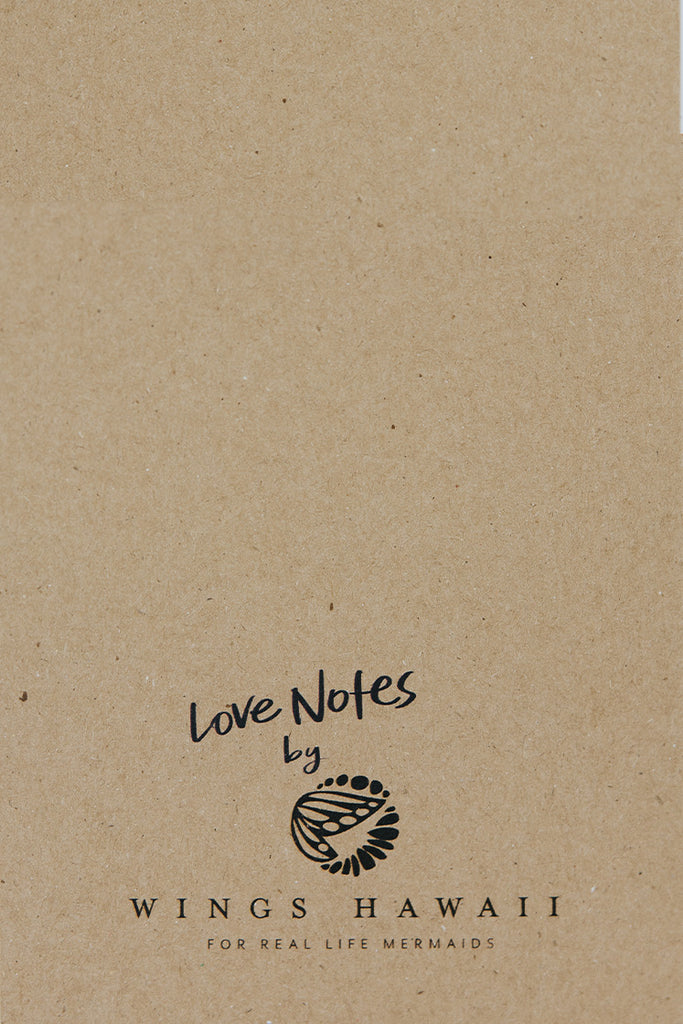 Love Notes
by
WINGS HAWAII
FOR REAL LIFE MERMAIDS